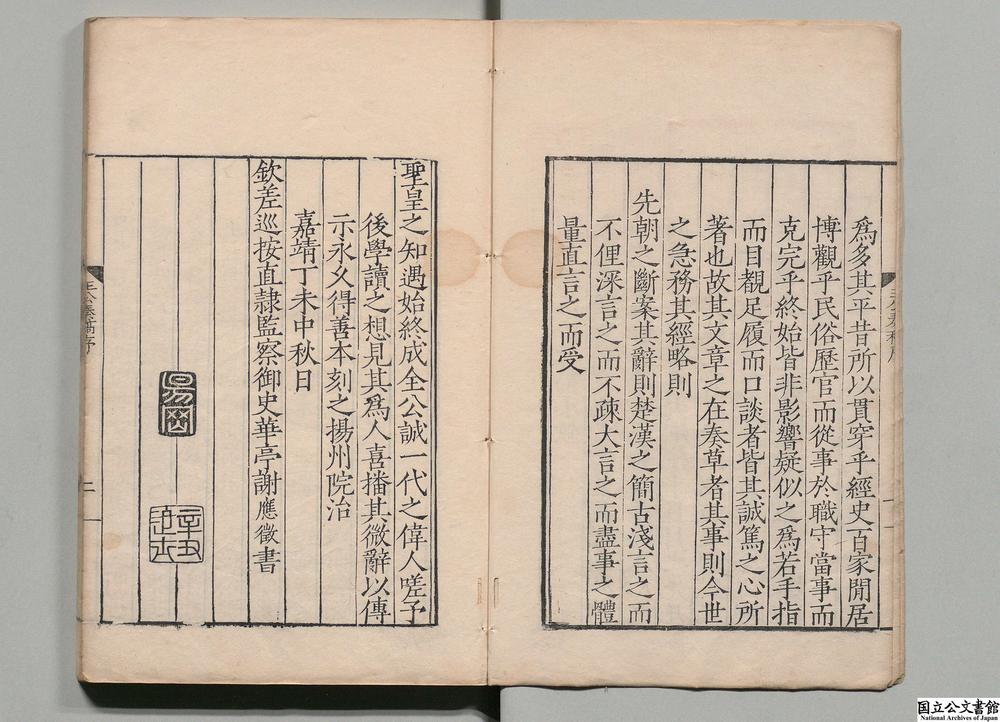 爲多其平昔所以貫穿乎經史百家閒居
博觀乎民俗歷官而從事於職守當事而
克完乎終始皆非影響疑似之爲若手指
而目覩足履而口談者皆其誠篤之心所
著也故其文章之在奏草者其事則今世
之急務其經略則
先朝之斷案其辭則楚漢之簡古淺言之而
不俚深言之而不疎大言之而盡事之體
量直言之而受
聖皇之知遇始終成全公誠一代之偉人嗟予
後學讀之想見其爲人喜播其微辭以傳
示永久得善本刻之揚州院治
嘉靖丁未中秋日
欽差巡按直隷監察御史華亭謝應徵書
二
国立公文書館
National Archives of Japan